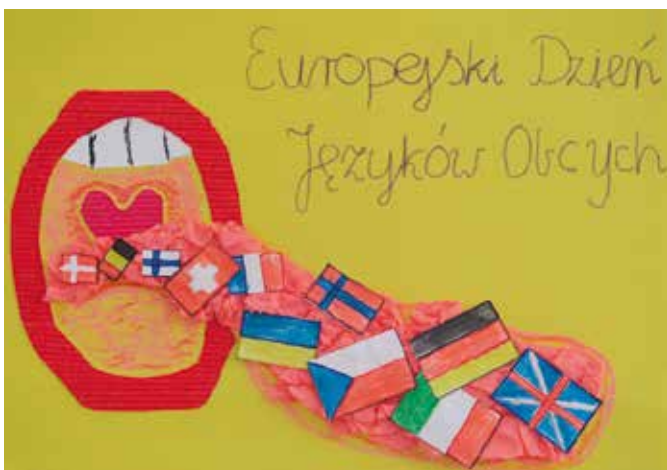 Europejski Dzień
Języków Obcych